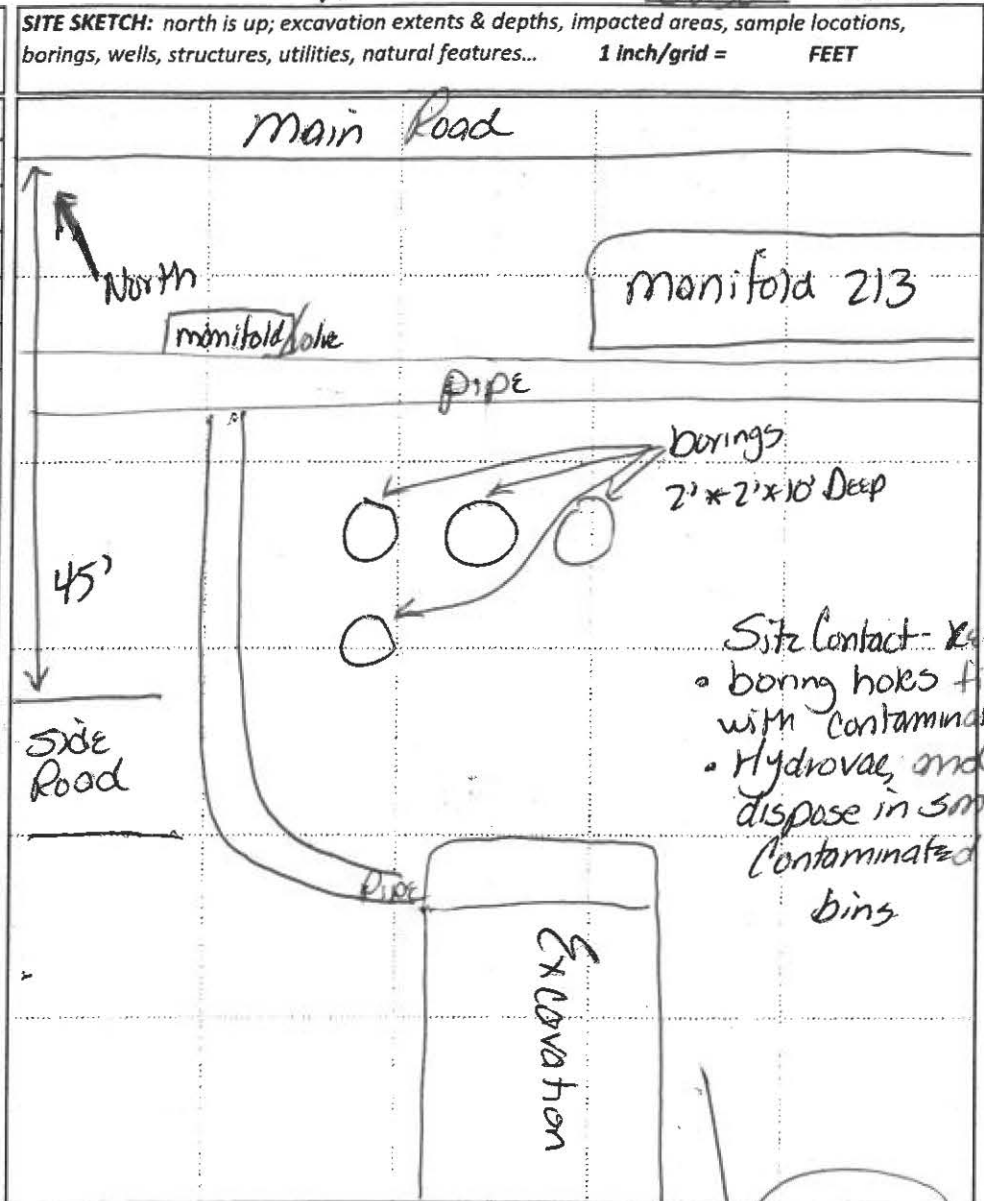 SITE SKETCH: north is up; excavation extents & depths, impacted areas, sample locations,
borings, wells, structures, utilities, natural features... 1 inch/grid = FEET
Main Road
North
Manifold 213
manifold
PIPE
borings
2' x 2' x 10' DEEP
45'
Site Contact -
• boring holes
with
• Hydrovac, and
dispose in
Contaminated
bins
Side
Road
Pipe
Excavation